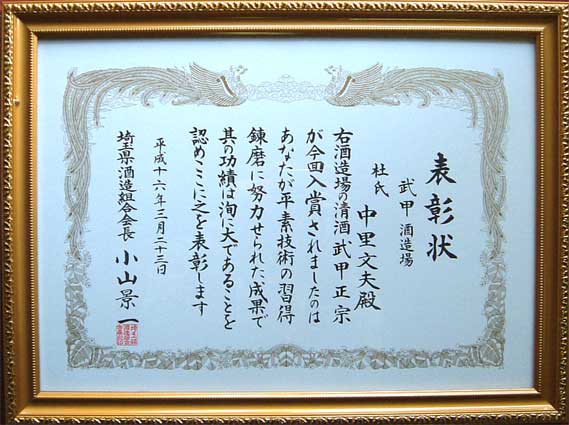 表彰状
武甲酒造場
杜氏 中里文夫殿
右酒造場の清酒武甲正宗
が今回入賞されましたのは
あなたが平素技術の習得
錬磨に努力せられた成果で
其の功績は洵に大であることを
認めここに之を表彰します
平成十六年三月二十三日
埼玉県酒造組合会長 小山景一